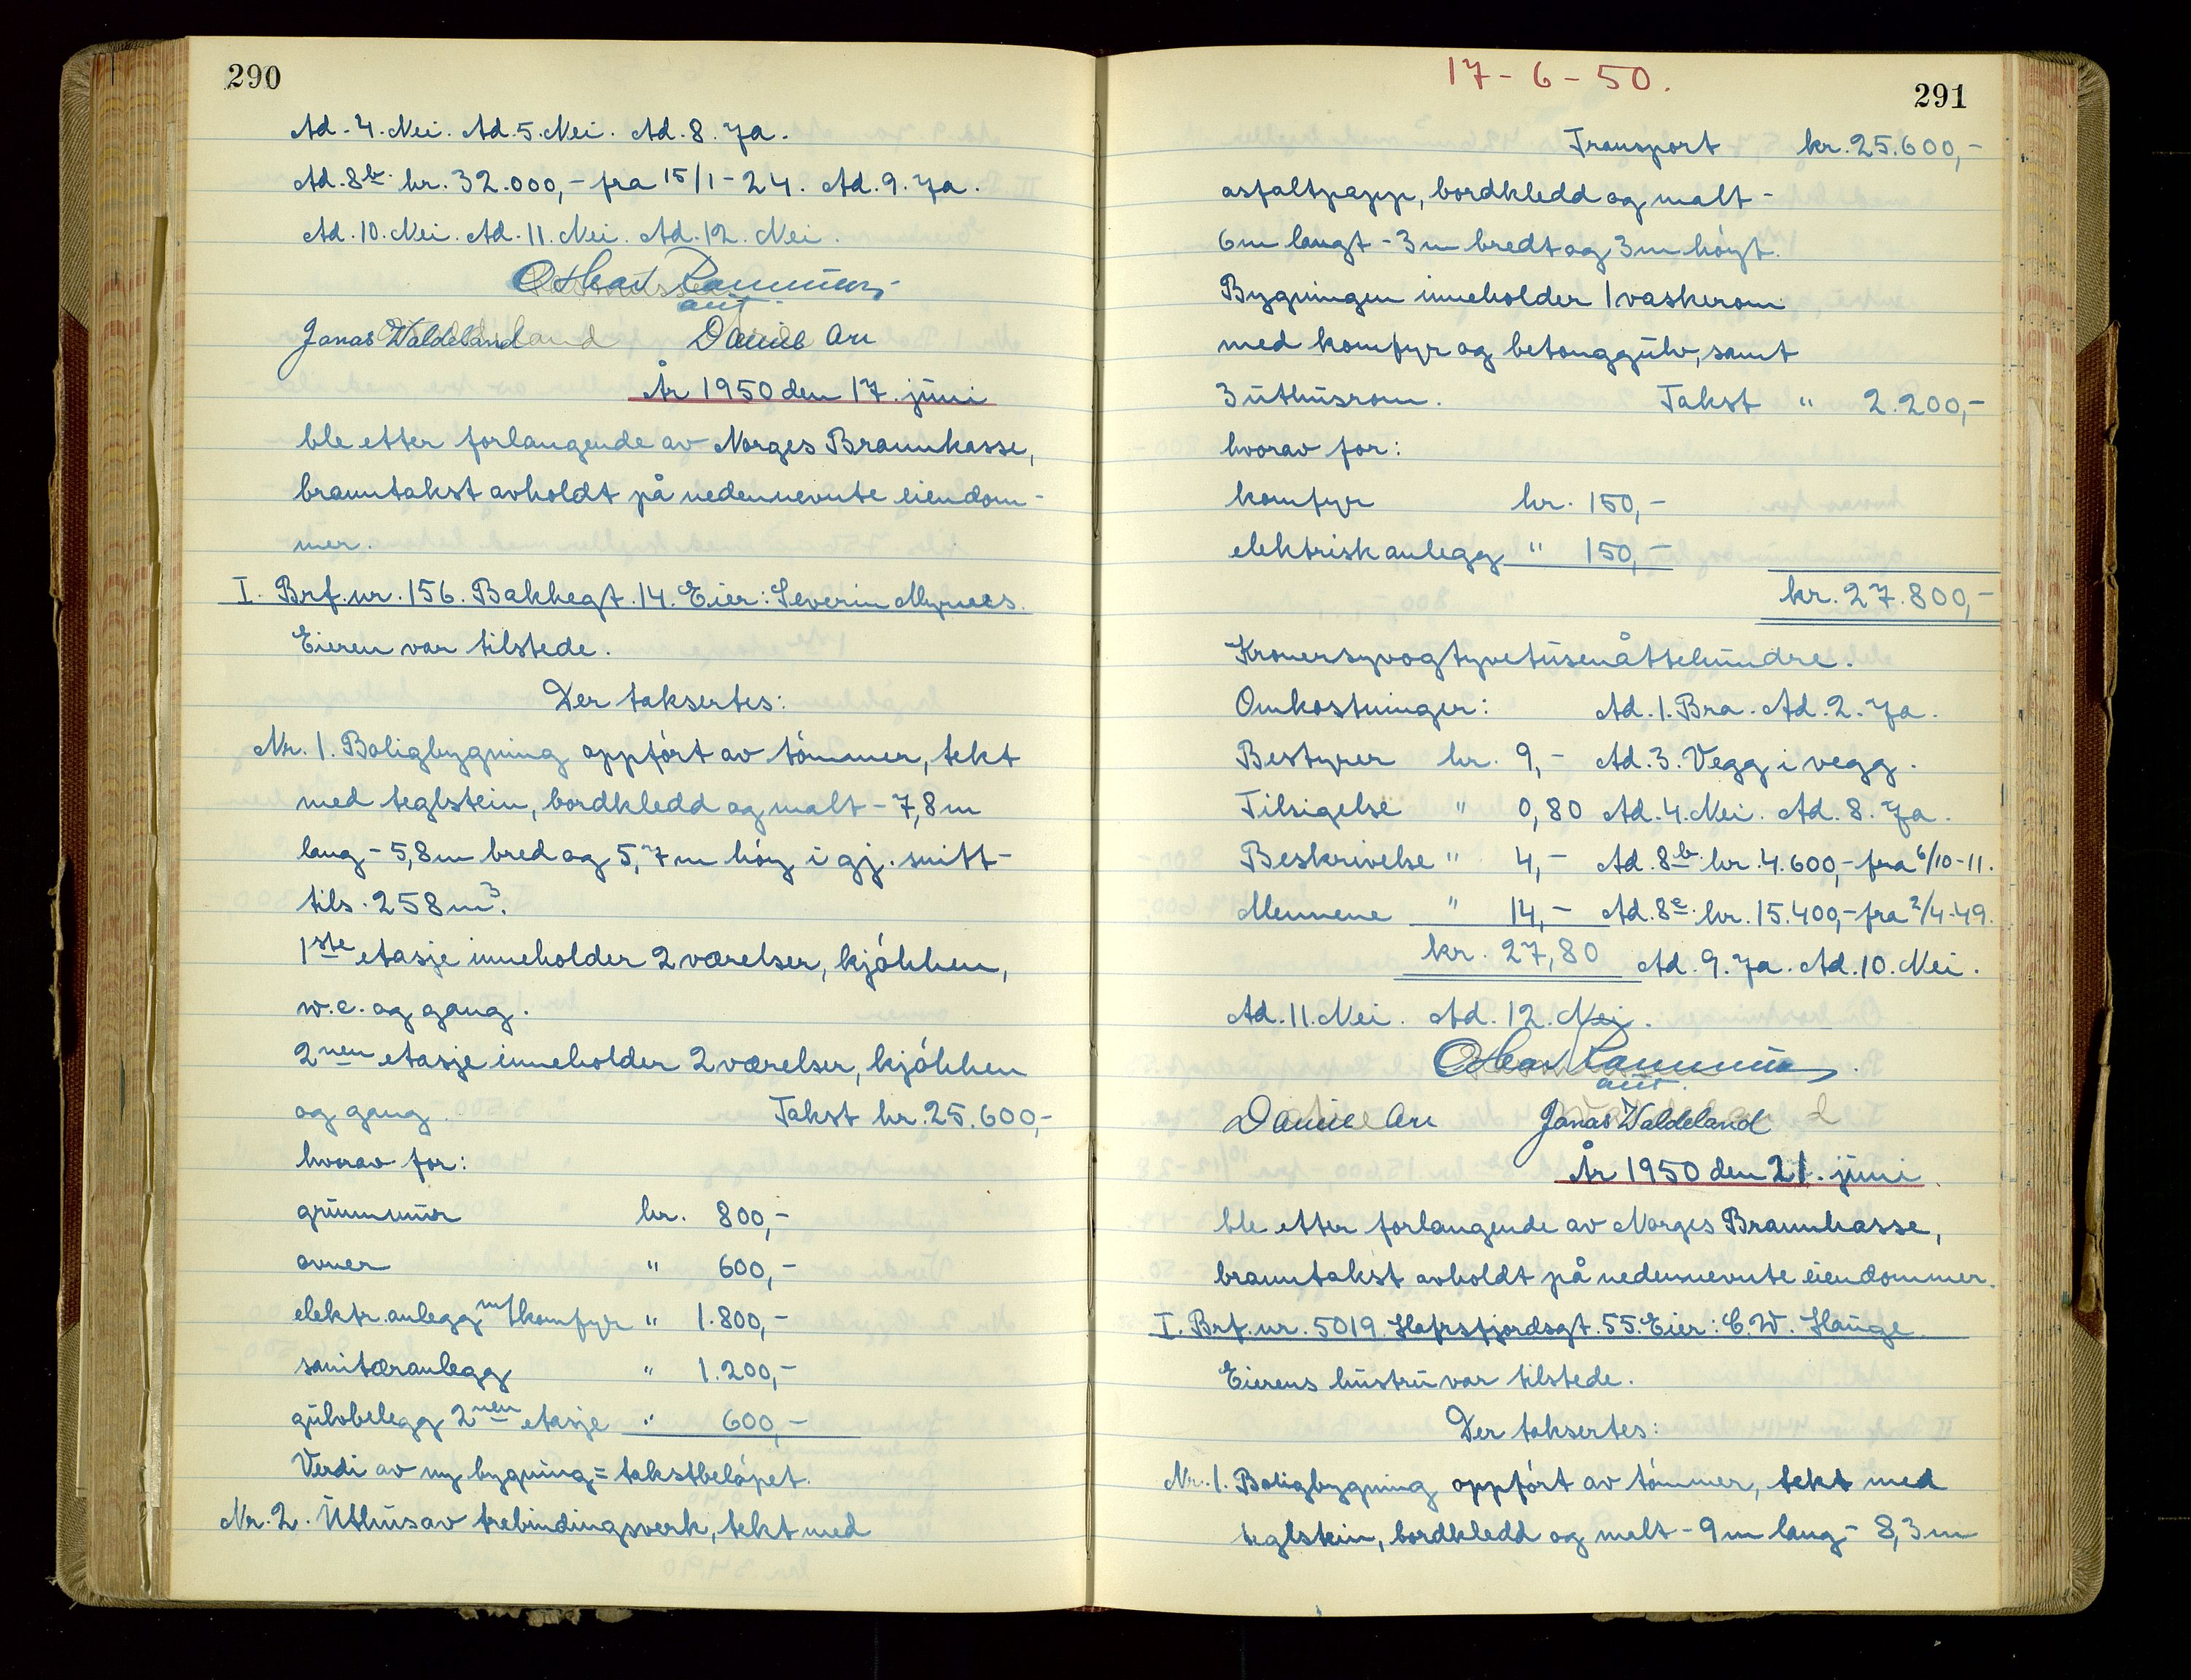 290
Ad. 4. Nei. Ad. 5. Nei. Ad. 8. Ja.
Ad. 8b. kr. 32.000,- fra 15/1-24. Ad. 9. Ja.
Ad. 10. Nei. Ad. 11. Nei. Ad. 12. Nei.
aut
Jonas Waldeland
År 1950 den 17. juni
ble etter forlangende av Norges Brannkasse,
branntakst avholdt på nedennevnte eiendom-
mer.
I. Brf. nr. 156. Bakkegt. 14. Eier: Severin Myrnes.
Eieren var tilstede.
Der taksertes:
Nr. 1. Boligbygning oppført av tømmer, tekt
med teglstein, bordkledd og malt - 7,8 m
lang - 5,8 m bred og 5,7 m høy i gj. snitt -
tils. 258 m³.
1ste etasje inneholder 2 værelser, kjøkken,
w.c. og gang.
2nen etasje inneholder 2 værelser, kjøkken
og gang. Takst kr. 25.600,-
hvorav for:
grunnmur kr. 800,-
ovner " 600,-
elektr. anlegg m/komfyr " 1.800,-
sanitæranlegg " 1.200,-
gulvbelegg 2nen etasje " 600,-
Verdi av ny bygning = takstbeløpet.
Nr. 2. Uthus av trebindingsverk, tekt med
17-6-50.
291
Transport kr. 25.600,-
asfaltpapp, bordkledd og malt -
6 m langt - 3 m bredt og 3 m høyt.
Bygningen inneholder 1 vaskerom
med komfyr og betonggulv, samt
3 uthusrom. Takst " 2.200,-
hvorav for:
komfyr kr. 150,-
elektrisk anlegg " 150,-
kr. 27.800,-
Kronersyvogtyvetusenåttehundre.
Omkostninger: Ad. 1. Bra. Ad. 2. Ja.
Bestyrer kr. 9,- Ad. 3. Vegg i vegg.
Tilsigelse " 0,80 Ad. 4. Nei. Ad. 8. Ja.
Beskrivelse " 4,- Ad. 8b. kr. 4.600,- fra 6/10-11.
Mennene " 14,- Ad. 8c. kr. 15.400,- fra 2/4-49.
kr. 27,80 Ad. 9. Ja. Ad. 10. Nei.
Ad. 11. Nei. Ad. 12. Nei.
aut.
Jonas Waldeland
År 1950 den 21. juni.
ble etter forlangende av Norges Brannkasse,
branntakst avholdt på nedennevnte eiendommer.
I. Brf. nr. 5019. Hafrsfjordsgt. 55. Eier: C. W. Hauge
Eierens hustru var tilstede.
Der taksertes:
Nr. 1. Boligbygning oppført av tømmer, tekt med
teglstein, bordkledd og malt - 9 m lang - 8,3 m